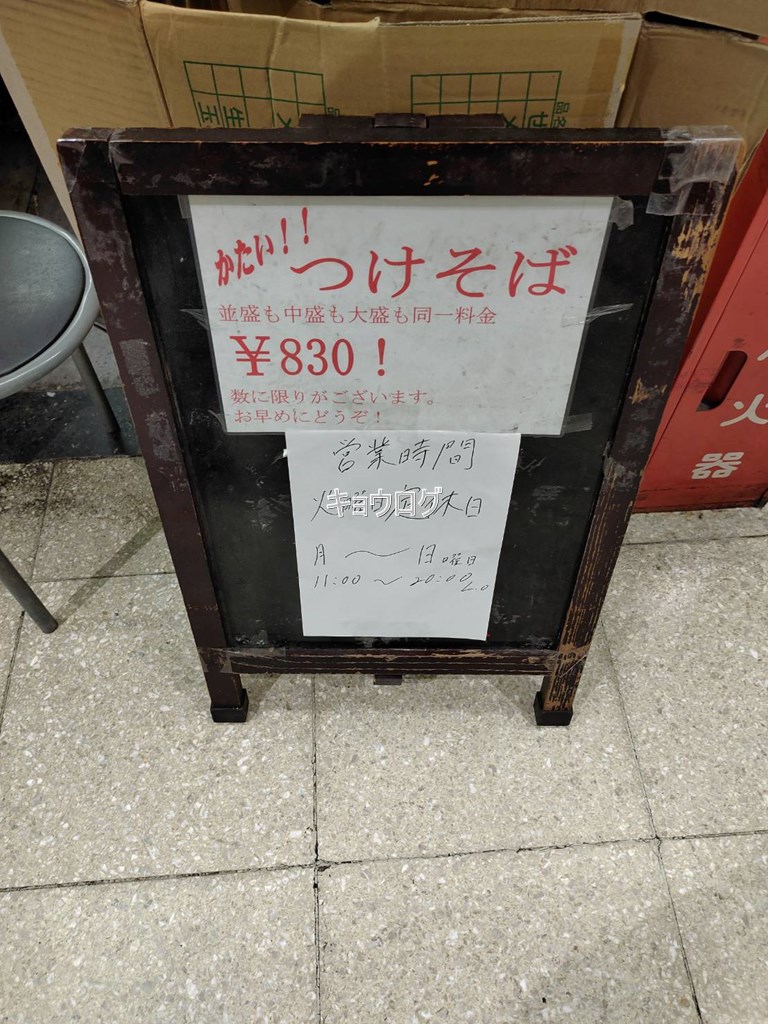 かたい!!
つけそば
並盛も中盛も大盛も同一料金
¥830!
数に限りがございます。
お早めにどうぞ!
営業時間
火曜日定休日
キョウログ
月 〜 日曜日
11:00 〜 20:00 L.O
火
器